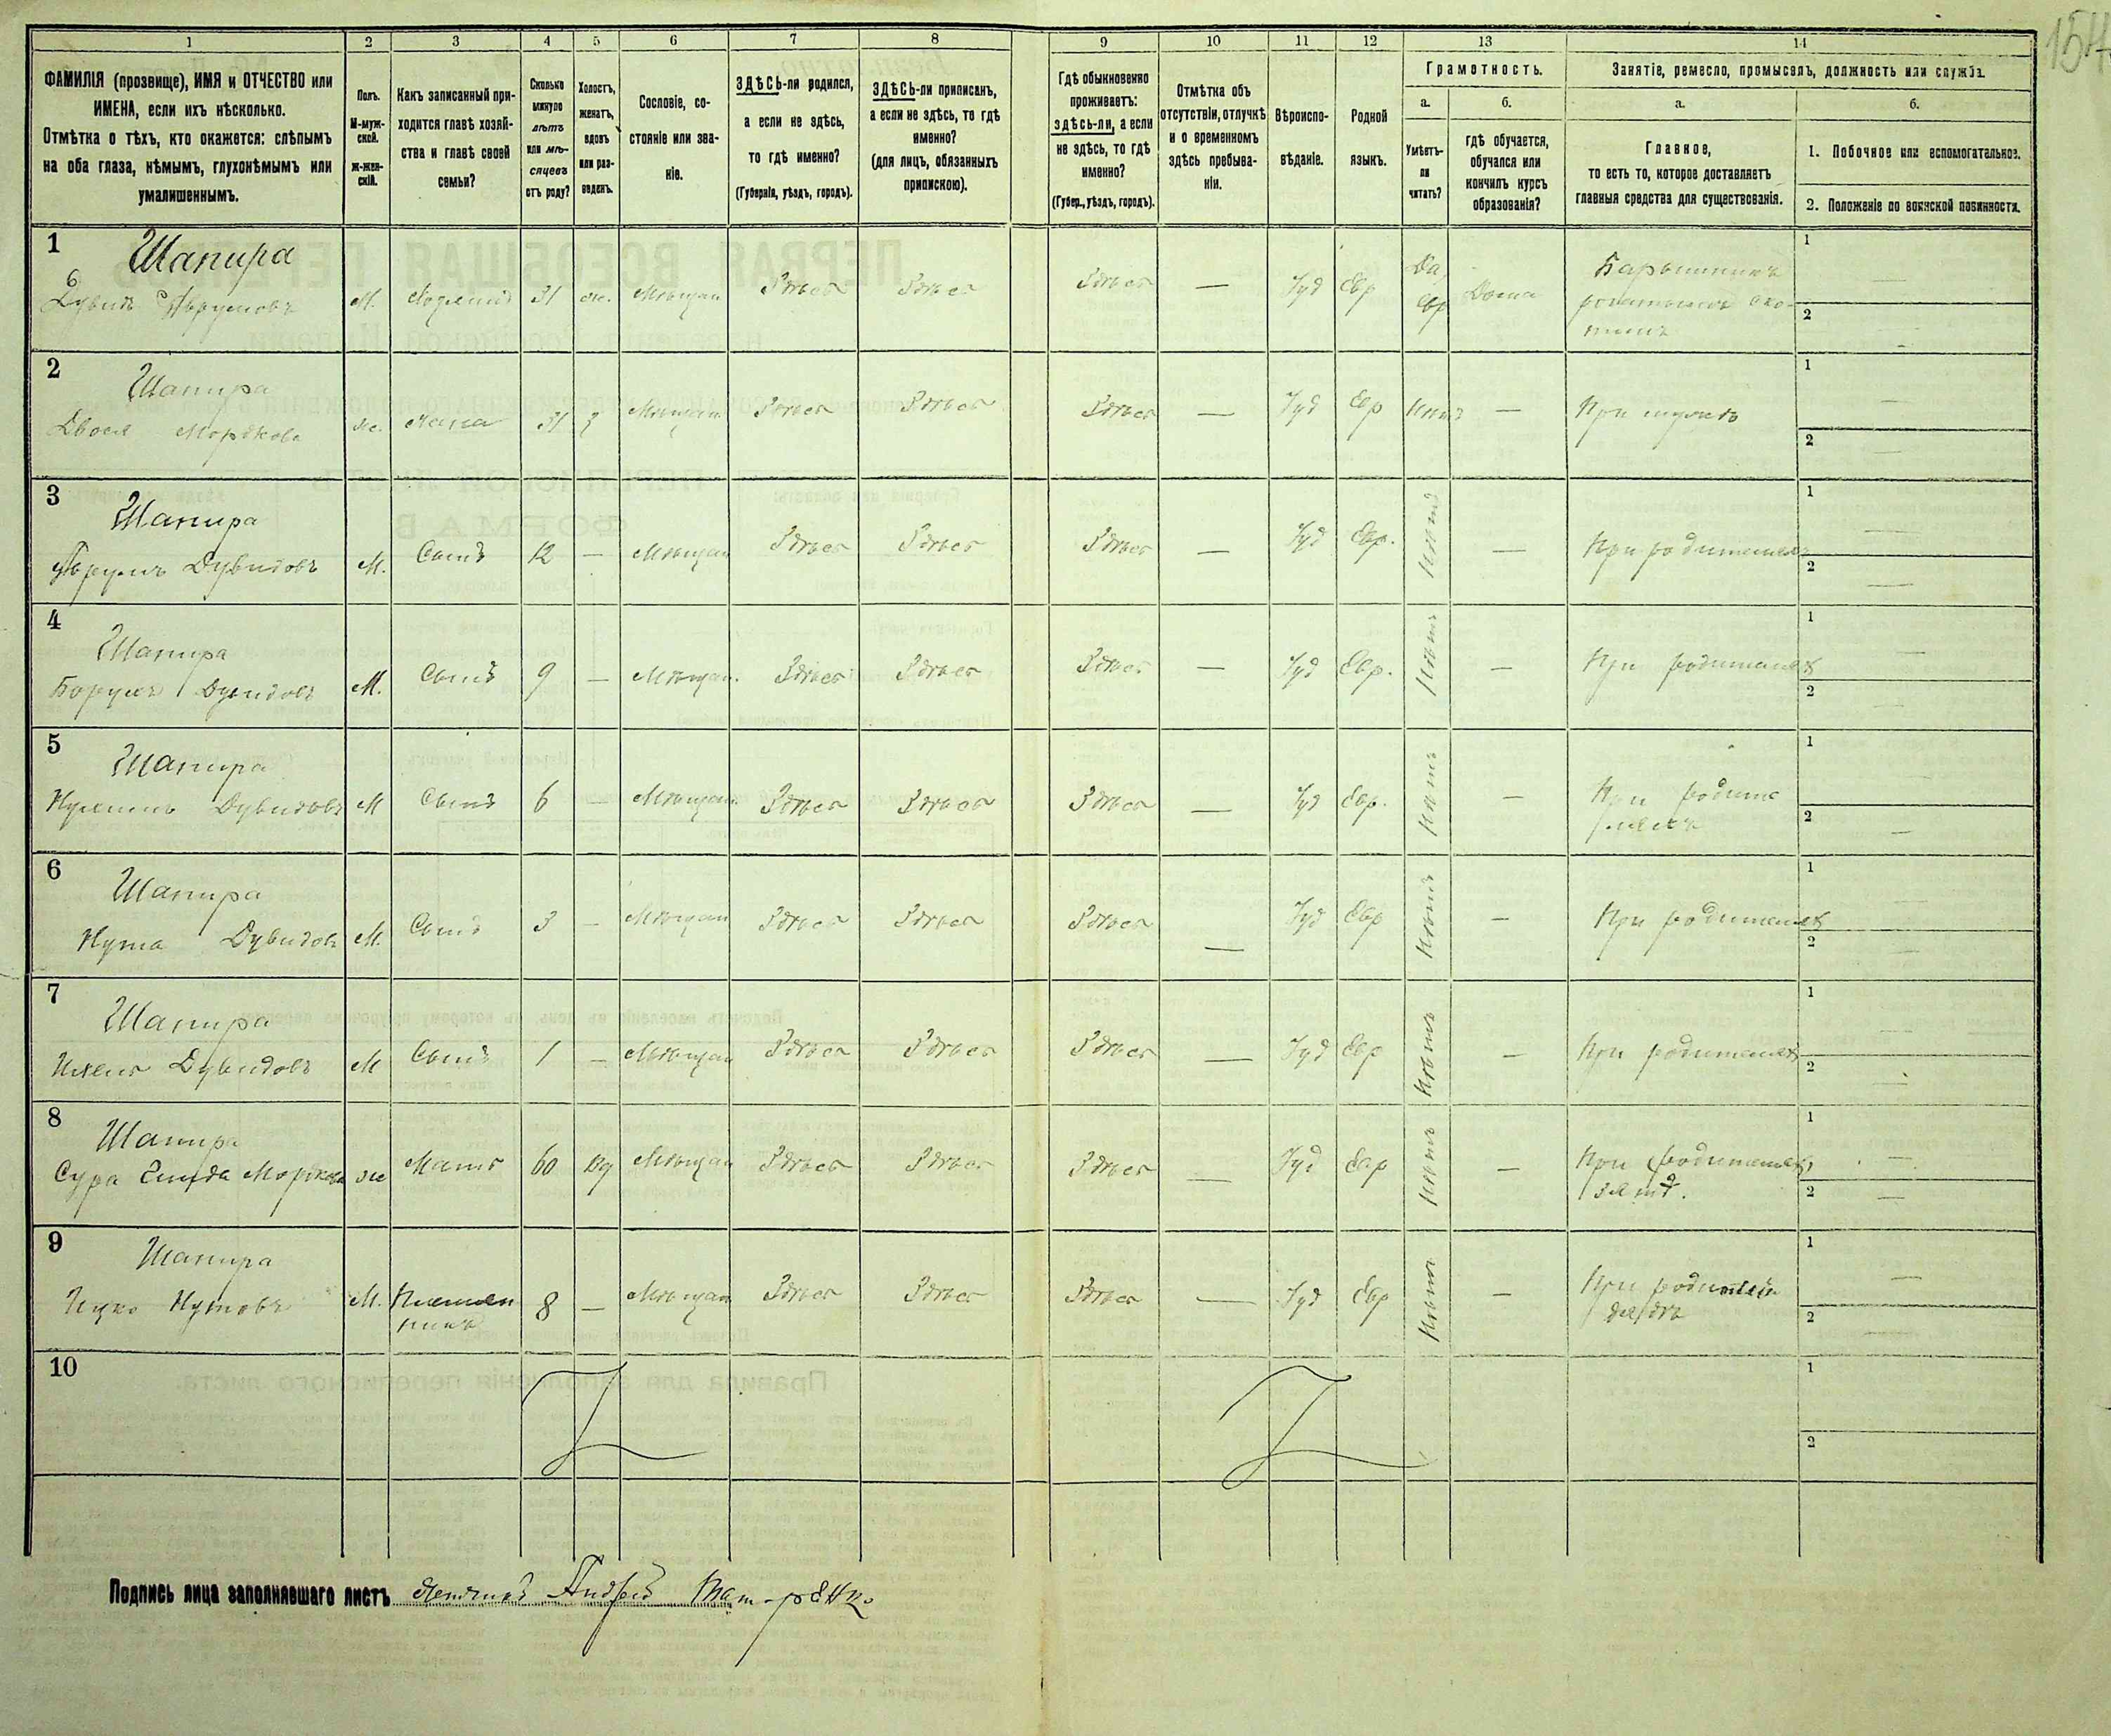 154
1 2 3 4 5 6 7 8 9 10 11 12 13 14
ФАМИЛІЯ (прозвище), ИМЯ и ОТЧЕСТВО или
ИМЕНА, если ихъ нѣсколько.
Отмѣтка о тѣхъ, кто окажется: слѣпымъ
на оба глаза, нѣмымъ, глухонѣмымъ или
умалишеннымъ.
Полъ.
М-муж-
ской.
Ж-жен-
скій.
Какъ записанный при-
ходится главѣ хозяй-
ства и главѣ своей
семьи?
Сколько
минуло
лѣтъ
или мѣ-
сяцевъ
отъ роду?
Холостъ,
женатъ,
вдовъ
или раз-
веденъ.
Сословіе, со-
стояніе или зва-
ніе.
ЗДѢСЬ-ли родился,
а если не здѣсь,
то гдѣ именно?
(Губернія, уѣздъ, городъ).
ЗДѢСЬ-ли приписанъ,
а если не здѣсь, то гдѣ
именно?
(для лицъ, обязанныхъ
припискою).
Гдѣ обыкновенно
проживаетъ:
здѣсь-ли, а если
не здѣсь, то гдѣ
именно?
(Губер., уѣздъ, городъ).
Отмѣтка объ
отсутствіи, отлучкѣ
и о временномъ
здѣсь пребыва-
ніи.
Вѣроиспо-
вѣданіе.
Родной
языкъ.
Грамотность.
а.
Умѣетъ-
ли
читать?
б.
гдѣ обучается,
обучался или
кончилъ курсъ
образованія?
Занятіе, ремесло, промыселъ, должность или служба.
а.
Главное,
то есть то, которое доставляетъ
главныя средства для существованія.
б.
1. Побочное или вспомогательное.
2. Положеніе по воинской повинности.
1 Шапира
Дувидъ М. Хозяинъ 31 ж. Мѣщан Здѣсь Здѣсь Здѣсь — Іуд Евр Да Евр Дома Барышникъ
1 —
2 —
2 Шапира
Двося Моркова ж. жена 31 З Мѣщан Здѣсь Здѣсь Здѣсь — Іуд Евр Нѣтъ — При мужѣ
1 —
2 —
3 Шапира
Дувидовъ М. Сынъ 12 — Мѣщан Здѣсь Здѣсь Здѣсь — Іуд Евр. Нѣтъ — При родителях
1 —
2 —
4 Шапира
Борухъ Дувидовъ М. Сынъ 9 — Мѣщан. Здѣсь Здѣсь Здѣсь — Іуд Евр. Нѣтъ — При родителях
1 —
2 —
5 Шапира
Дувидовъ М Сынъ 6 — Мѣщан. Здѣсь Здѣсь Здѣсь — Іуд Евр. Нѣтъ — При родите
ляхъ
1 —
2 —
6 Шапира
Нута Дувидов М. Сынъ 3 — Мѣщан Здѣсь Здѣсь Здѣсь — Іуд Евр Нѣтъ — При родителях
1 —
2 —
7 Шапира
Дувидовъ М Сынъ 1 — Мѣщан Здѣсь Здѣсь Здѣсь — Іуд Евр Нѣтъ — При родителях
1 —
2 —
8 Шапира
Сура Моркова ж Мать 60 вд Мѣщан Здѣсь Здѣсь Здѣсь — Іуд Евр Нѣтъ — При
1 —
2 —
9 Шапира
Ицко Нутовъ М. Племян
никъ 8 — Мѣщан Здѣсь Здѣсь Здѣсь — Іуд Евр Нѣтъ — При
дядѣ
1 —
2 —
10
1
2
Подпись лица заполнявшаго листъ Андрей